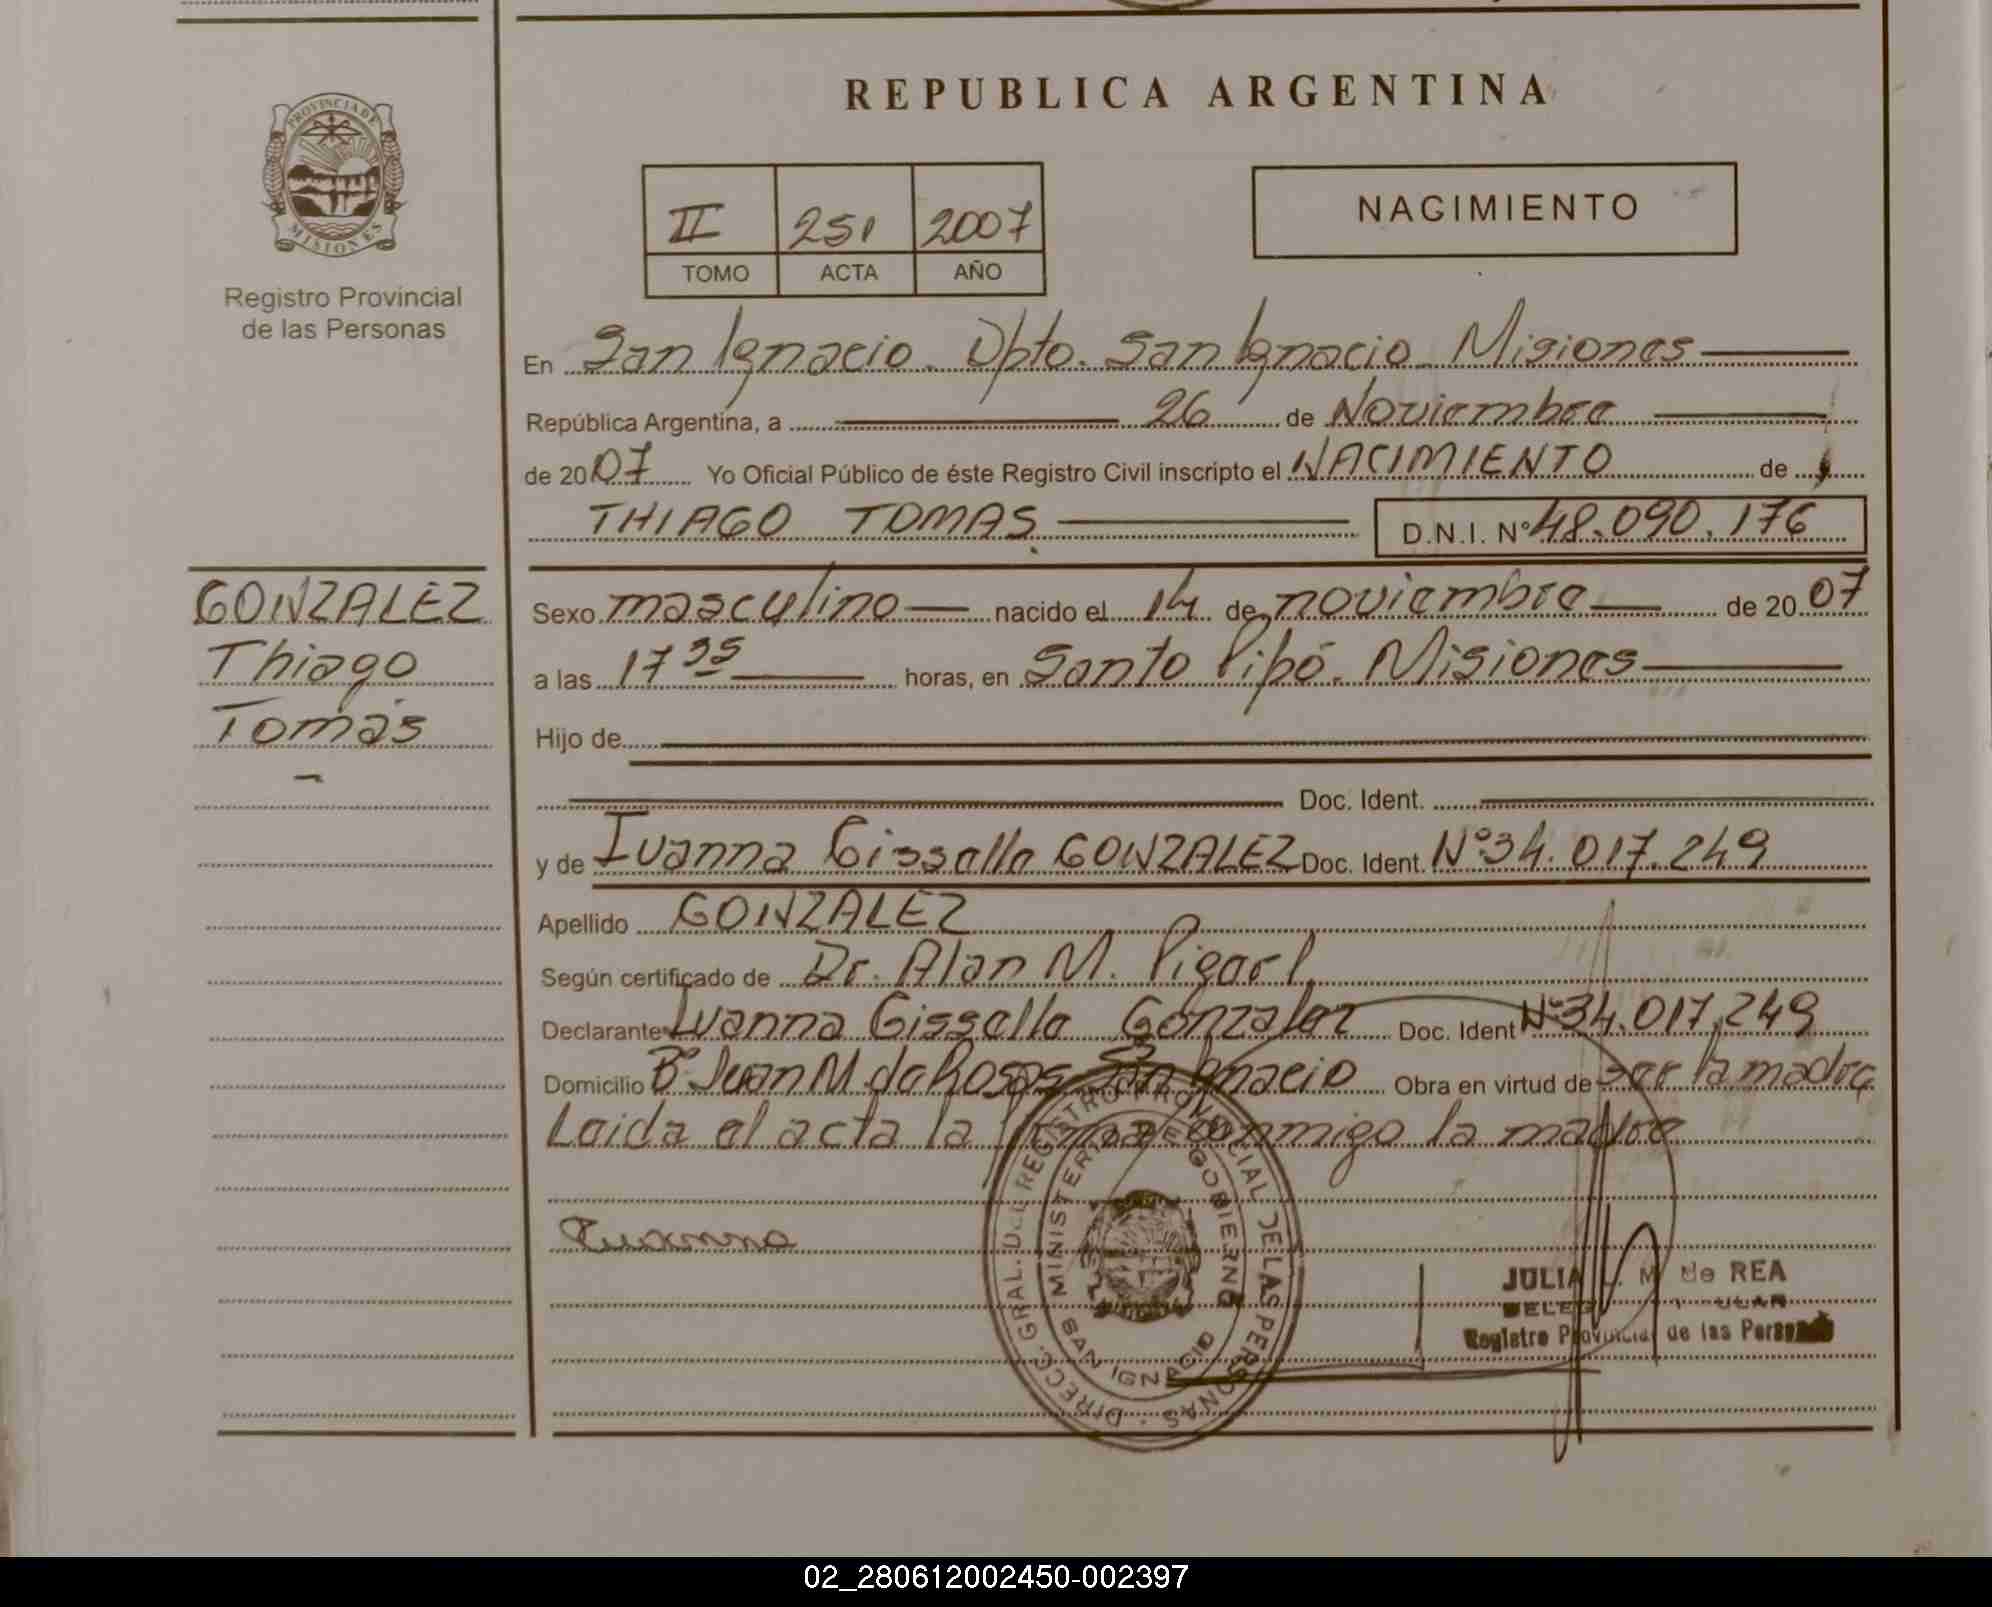 REPUBLICA ARGENTINA
PROVINCIA DE
MISIONES
Registro Provincial
de las Personas
II 251 2007
TOMO ACTA AÑO
NACIMIENTO
En San Ignacio. Dpto. San Ignacio Misiones
República Argentina, a 26 de Noviembre
de 2007 Yo Oficial Público de éste Registro Civil inscripto el NACIMIENTO de
THIAGO TOMAS D.N.I. Nº 48.090.176
GONZALEZ
Thiago
Tomás
Sexo masculino nacido el 14 de noviembre de 2007
a las 17 35 horas, en Santo Pipó. Misiones
Hijo de
Doc. Ident.
y de Ivanna Gissella GONZALEZ Doc. Ident. Nº 34.017.249
Apellido GONZALEZ
Según certificado de Dr. Alan M.
Declarante Ivanna Gissella Gonzalez Doc. Ident Nº 34.017.249
Domicilio Bº Juan M. de Rosas San Ignacio Obra en virtud de ser la madre
Leida el acta la firma conmigo la madre
Ivanna
DIRECC. GRAL. DEL REGISTRO PROVINCIAL DE LAS PERSONAS
MINISTERIO DE GOBIERNO
SAN IGNACIO
JULIA M de REA
Registro Provincial de las Personas
02_280612002450-002397